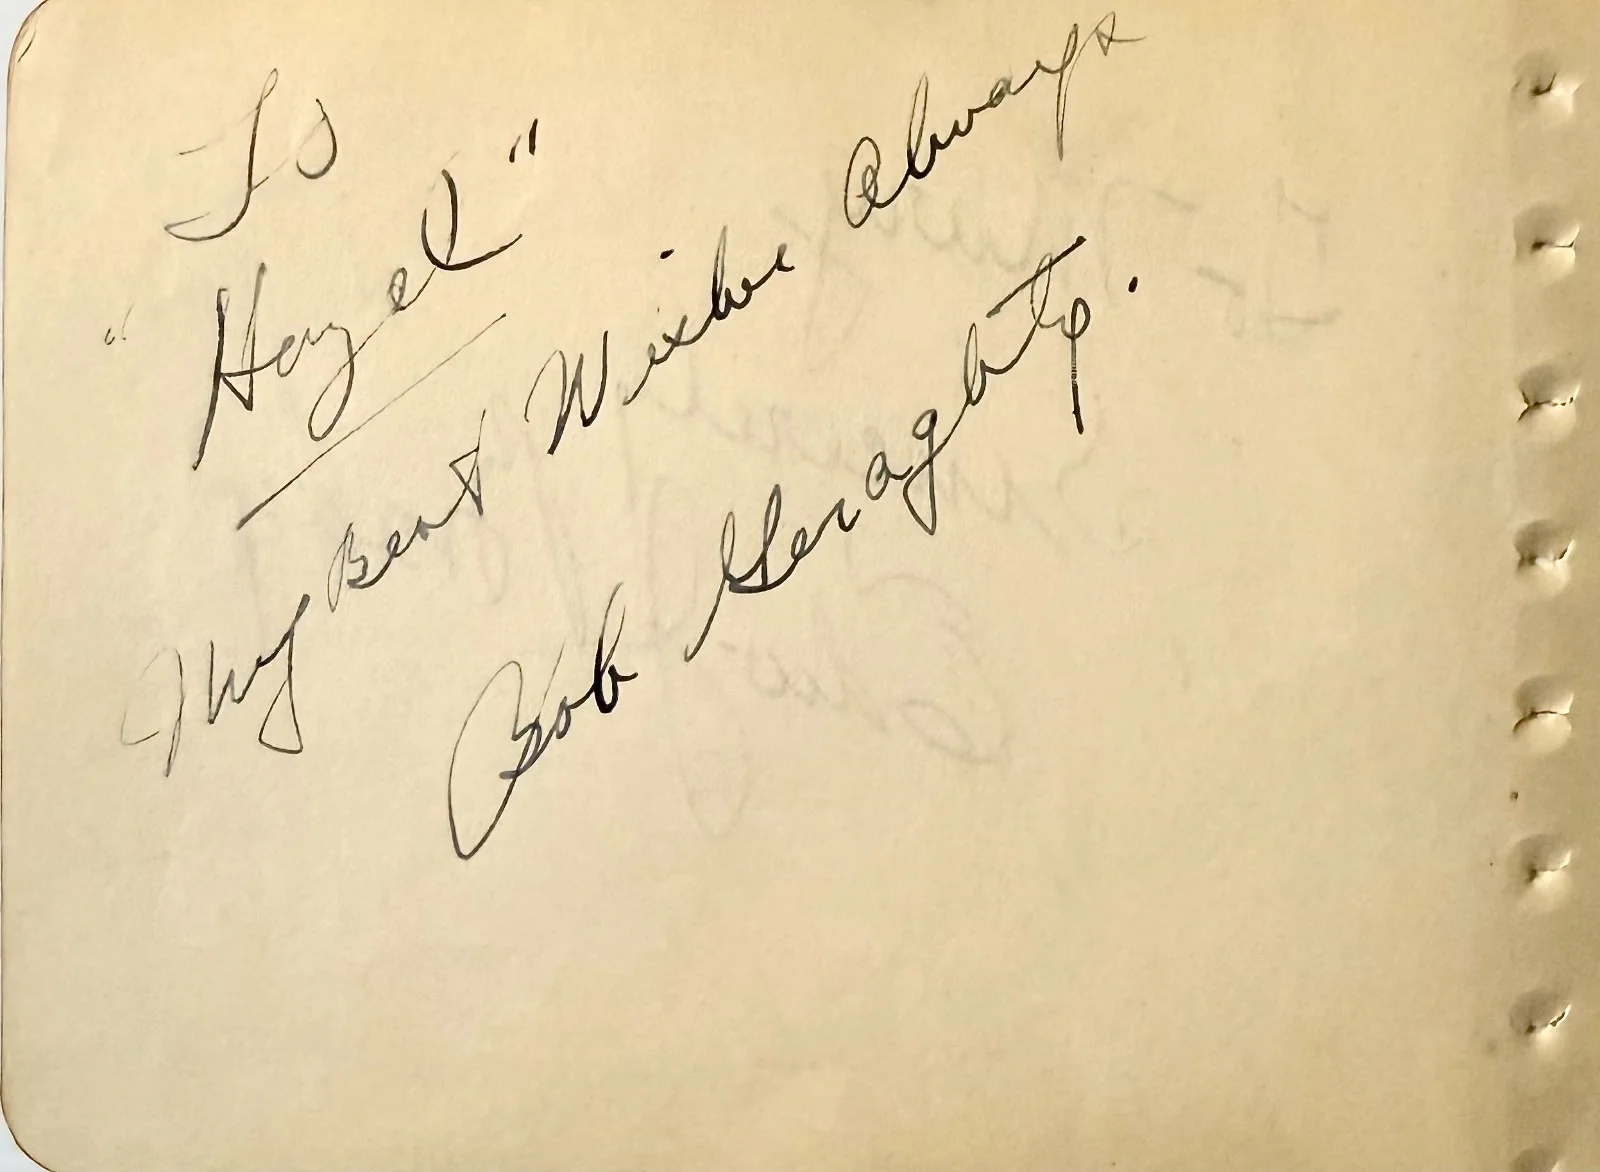 To
"Hazel"
My Best Wishes Always
Bob Geraghty.